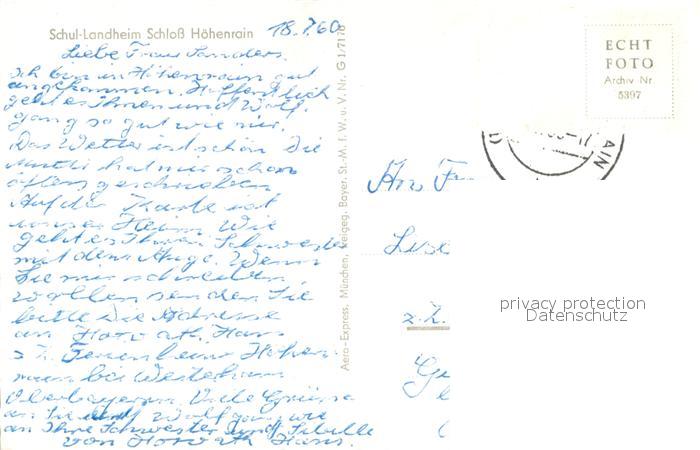 Schul-Landheim Schloß Höhenrain
18.7.60
Liebe Frau Sanders.
Ich bin in Höhenrain gut
angekommen. Hoffentlich
geht es Ihnen und Wolf-
gang so gut wie mir.
Das Wetter ist schön Die
Mutti hat mir schon
öfters geschrieben
Auf der Karte ist
unser Heim. Wie
geht es Ihrer Schwester
mit dem Auge. Wenn
Sie mir schreiben
wollen senden Sie
bitte Die Adresse
an Horvath, Hans
z. Z. Ferienheim Höhen-
rain bei Westerham
Oberbayern. Viele Grüsse
an Sie und Wolfgang wie
an Ihre Schwester und Sibille
von Horvath Hans.
Aero-Express, München, Freigeg. Bayer. St.-M. f. W. u. V. Nr. G 1/717
ECHT
FOTO
Archiv Nr.
5397
AIN
An Fr
z. Z.
privacy protection
Datenschutz